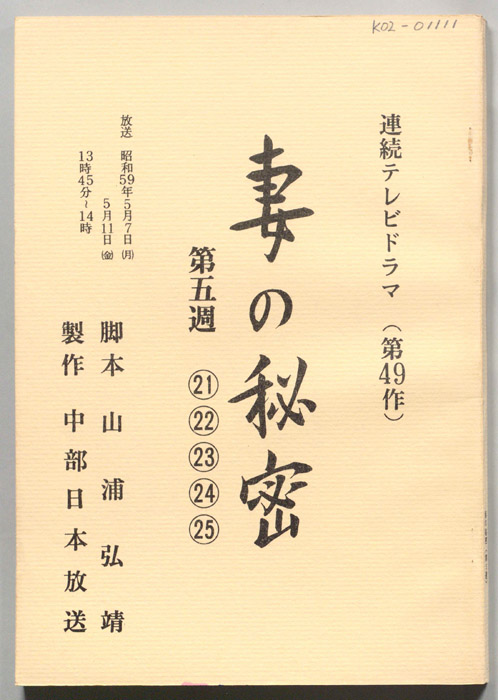 K02-01111
連続テレビドラマ（第49作）
妻の秘密
第五週 ㉑㉒㉓㉔㉕
放送 昭和59年5月7日㈪
5月11日㈮
13時45分~14時
脚本 山浦弘靖
製作 中部日本放送